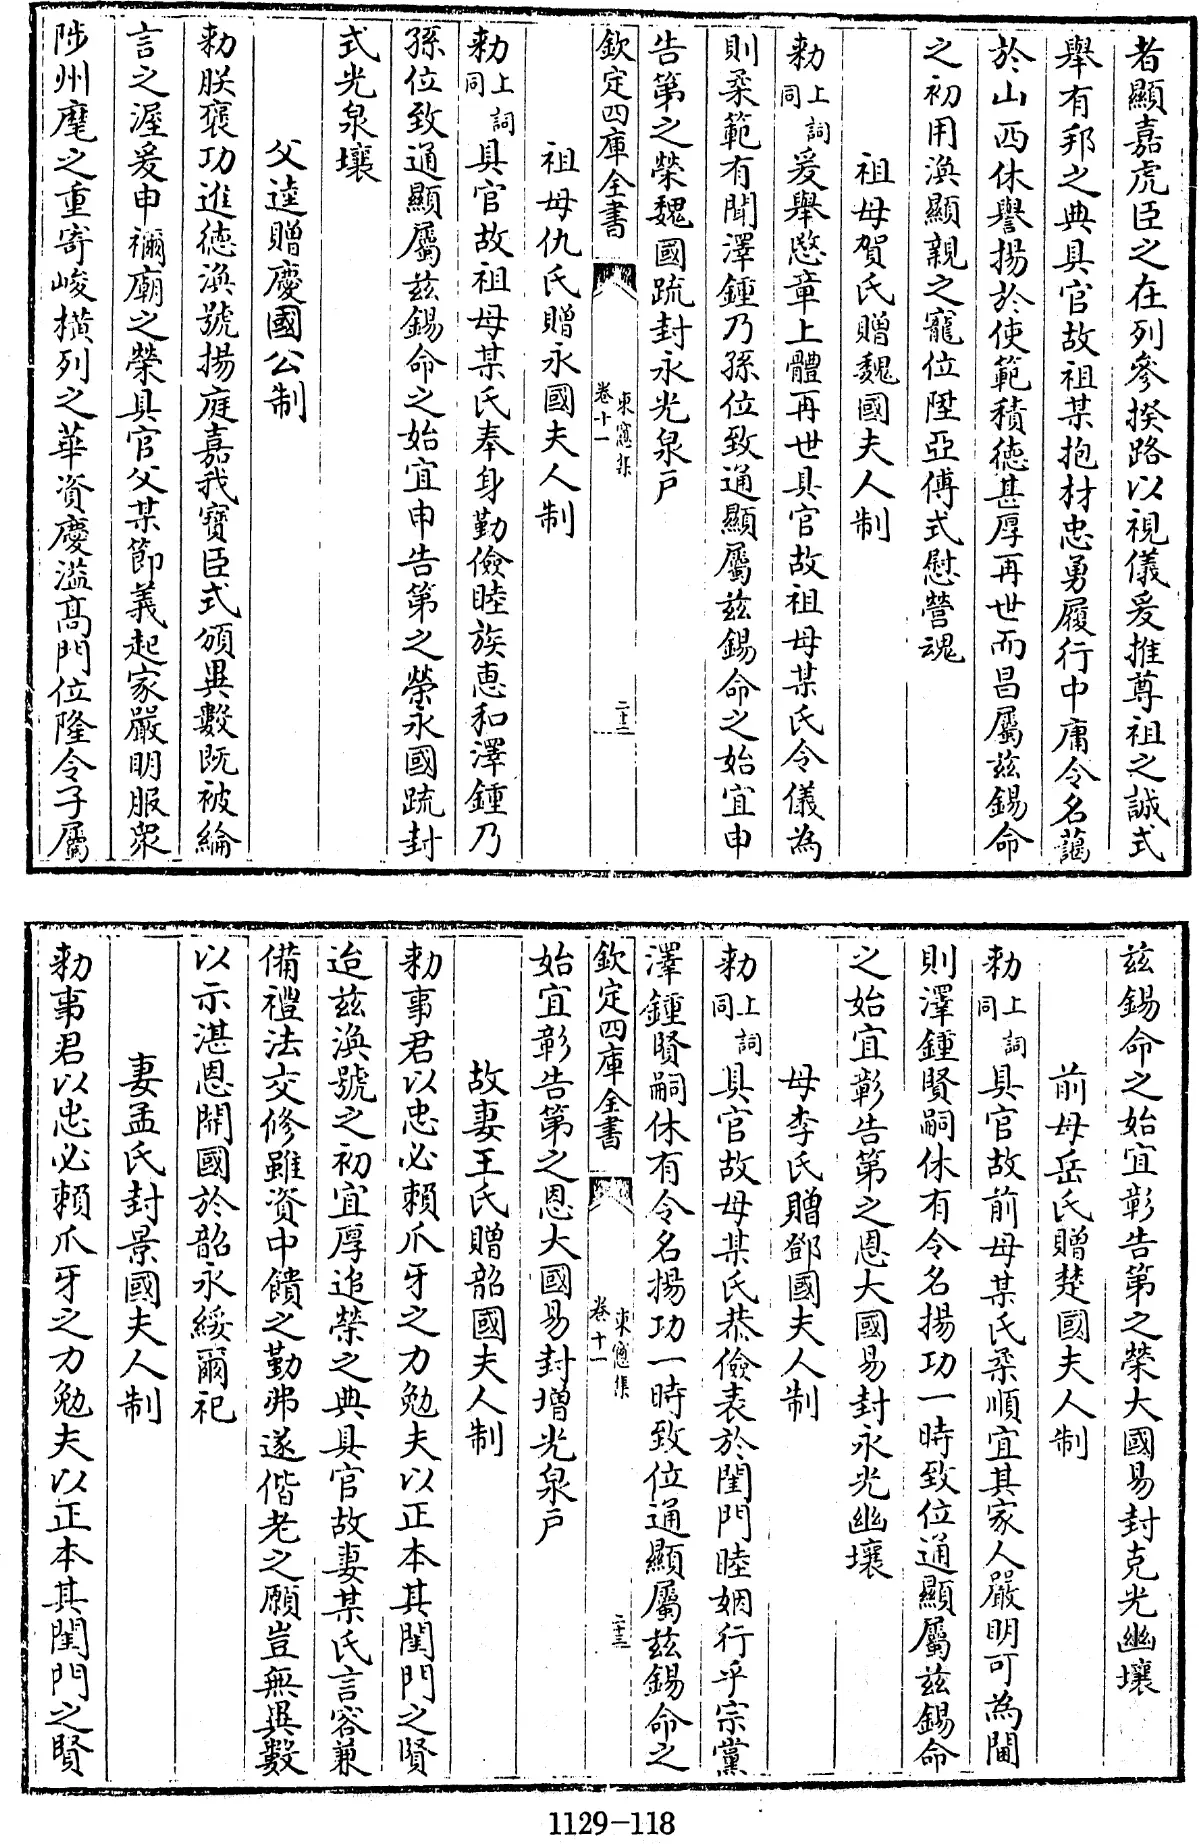 者顯嘉虎臣之在列參揆路以視儀爰推尊祖之誠式
舉有邦之典具官故祖某抱材忠勇履行中庸令名藹
於山西休譽揚於使範積德甚厚再世而昌屬茲錫命
之初用渙顯親之寵位陞亞傅式慰營魂
祖母賀氏贈魏國夫人制
勅上詞同爰舉愍章上體再世具官故祖母某氏令儀為
則柔範有聞澤鍾乃孫位致通顯屬茲錫命之始宜申
告第之榮魏國疏封永光泉戶
欽定四庫全書
東窻集
卷十一
二十二
祖母仇氏贈永國夫人制
勅上詞同具官故祖母某氏奉身勤儉睦族惠和澤鍾乃
孫位致通顯屬茲錫命之始宜申告第之榮永國疏封
式光泉壤
父逵贈慶國公制
勅朕褒功進德渙號揚庭嘉我寶臣式頒異數既被綸
言之渥爰申禰廟之榮具官父某節義起家嚴明服衆
陟州麾之重寄峻橫列之華資慶溢高門位隆令子屬
茲錫命之始宜彰告第之榮大國易封克光幽壤
前母岳氏贈楚國夫人制
勅上詞同具官故前母某氏柔順宜其家人嚴明可為閫
則澤鍾賢嗣休有令名揚功一時致位通顯屬茲錫命
之始宜彰告第之恩大國易封永光幽壤
母李氏贈鄧國夫人制
勅上詞同具官故母某氏恭儉表於閨門睦姻行乎宗黨
澤鍾賢嗣休有令名揚功一時致位通顯屬茲錫命之
欽定四庫全書
東窻集
卷十一
二十三
始宜彰告第之恩大國易封增光泉戶
故妻王氏贈韶國夫人制
勅事君以忠必賴爪牙之力勉夫以正本其閨門之賢
迨茲渙號之初宜厚追榮之典具官故妻某氏言容兼
備禮法交修雖資中饋之勤弗遂偕老之願豈無異數
以示湛恩開國於韶永綏爾祀
妻孟氏封景國夫人制
勅事君以忠必賴爪牙之力勉夫以正本其閨門之賢
1129-118